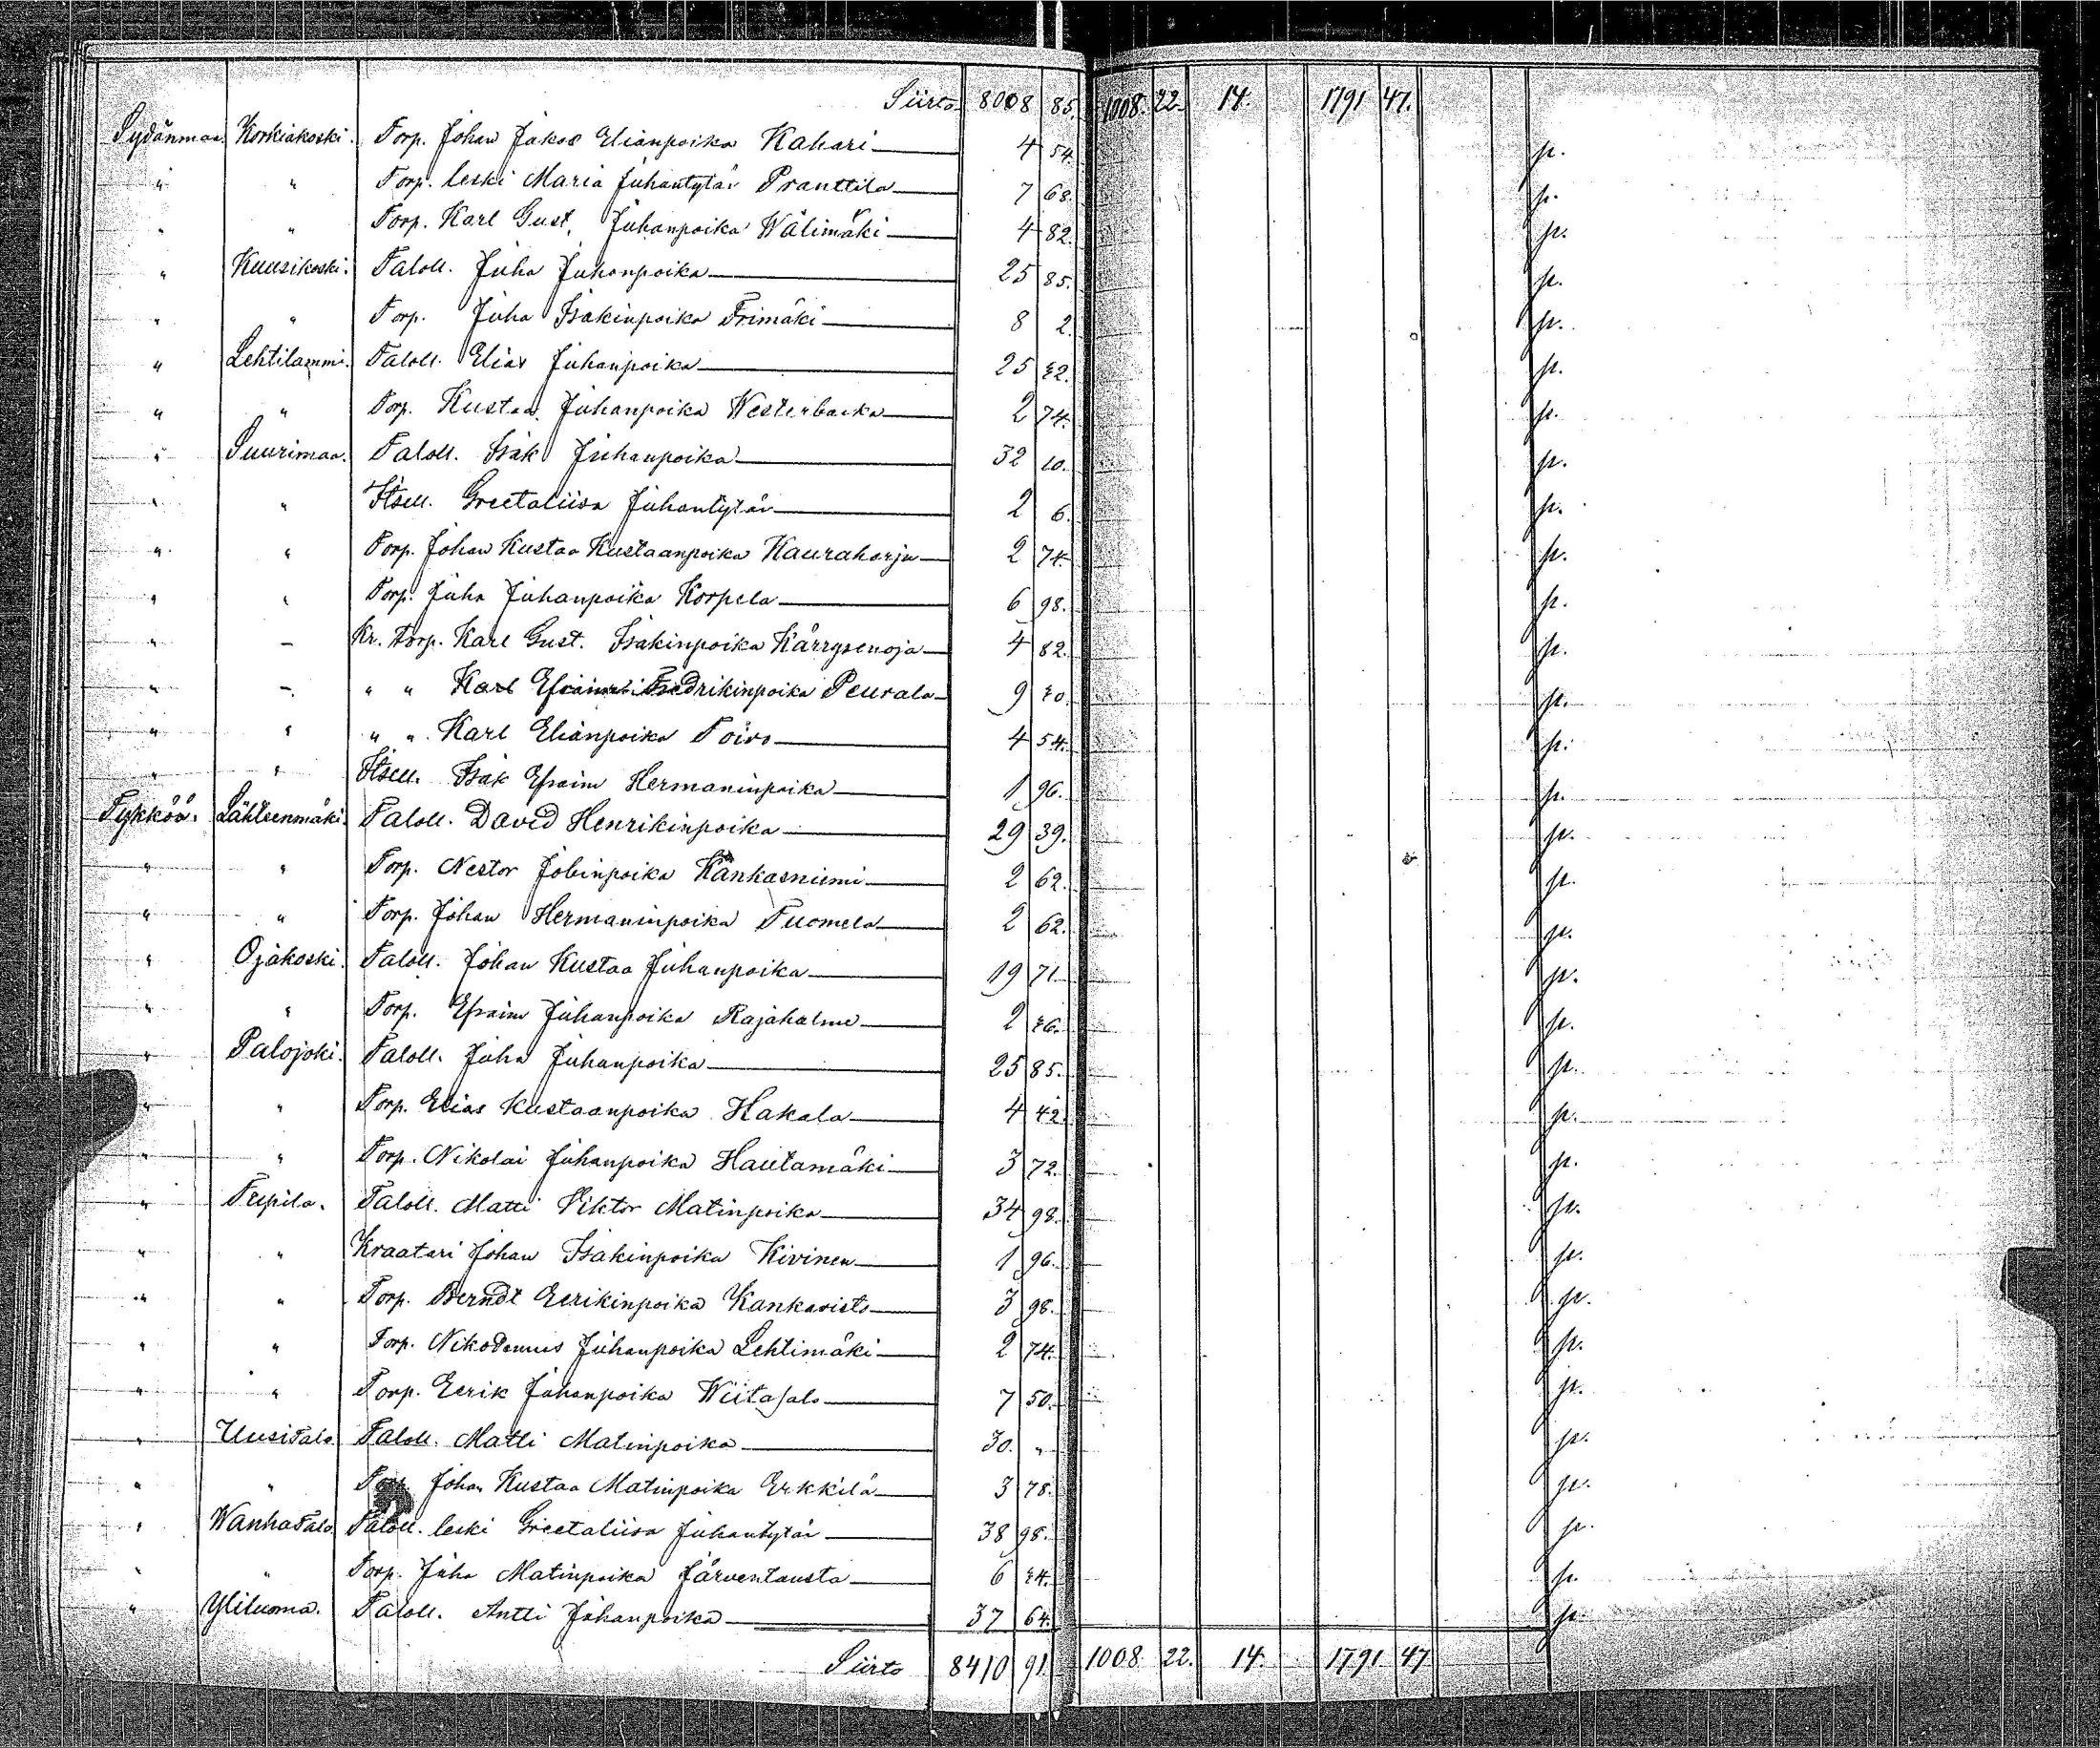 Siirto 8008 85. 1008. 22. 14. 1791 47.
Sydänmaa. Korkiakoski. Torp. Johan Jakob Elianpoika Kahari 4 54. p.
" " Torp. leski Maria Juhantytär Pranttila 7 68. p.
" " Torp. Karl Gust. Juhanpoika Wälimäki 4 82. p.
" Kuusikoski. Taloll. Juha Juhanpoika 25 85. p.
" " Torp. Juha Isakinpoika Trimäki 8 2. p.
" Lehtilammi. Taloll. Elias Juhanpoika 25 p.
" " Torp. Kustaa Juhanpoika Westerbacka 2 74. p.
" Suurimaa. Taloll. Isak Juhanpoika 32 10. p.
" " Itsell. Greetaliisa Juhantytär 2 6. p.
" " Torp. Johan Kustaa Kustaanpoika Kauraharju 2 74. p.
" " Torp. Juha Juhanpoika Korpela 6 98. p.
" – Kr. torp. Karl Gust. Isakinpoika Kärrysenoja 4 82. p.
" – " " Karl Fredrikinpoika Peurala 9 p.
" " " " Karl Elianpoika Toivo 4 54. p.
" " Itsell. Isak Efraim Hermaninpoika 1 96. p.
Tykköö. Lähteenmäki. Taloll. David Henrikinpoika 29 39. p.
" " Torp. Nestor Jobinpoika Kankasniemi 2 62. p.
" " Torp. Johan Hermaninpoika Tuomela 2 62. p.
" Ojakoski. Taloll. Johan Kustaa Juhanpoika 19 71. p.
" " Torp. Efraim Juhanpoika Rajahalme 2 p.
" Palojoki. Taloll. Juha Juhanpoika 25 85. p.
" " Torp. Elias Kustaanpoika Hakala 4 42. p.
" " Torp. Nikolai Juhanpoika Hautamäki 3 72. p.
" Trepila. Taloll. Matti Viktor Matinpoika 34 98. p.
" " Kraatari Johan Isakinpoika Kivinen 1 96. p.
" " Torp. Berndt Eerikinpoika Kankaristo 3 98. p.
" " Torp. Nikodemus Juhanpoika Lehtimäki 2 74. p.
" " Torp. Eerik Juhanpoika Wiitasalo 7 50. p.
" Uusitalo. Taloll. Matti Matinpoika 30. " p.
" " Torp. Johan Kustaa Matinpoika Erkkilä 3 78. p.
" Wanhatalo. Taloll. leski Greetaliisa Juhantytär 38 98. p.
" " Torp. Juha Matinpoika Järventausta 6 p.
" Yliluoma. Taloll. Antti Juhanpoika 37 64. p.
Siirto 8410 91. 1008. 22. 14. 1791 47